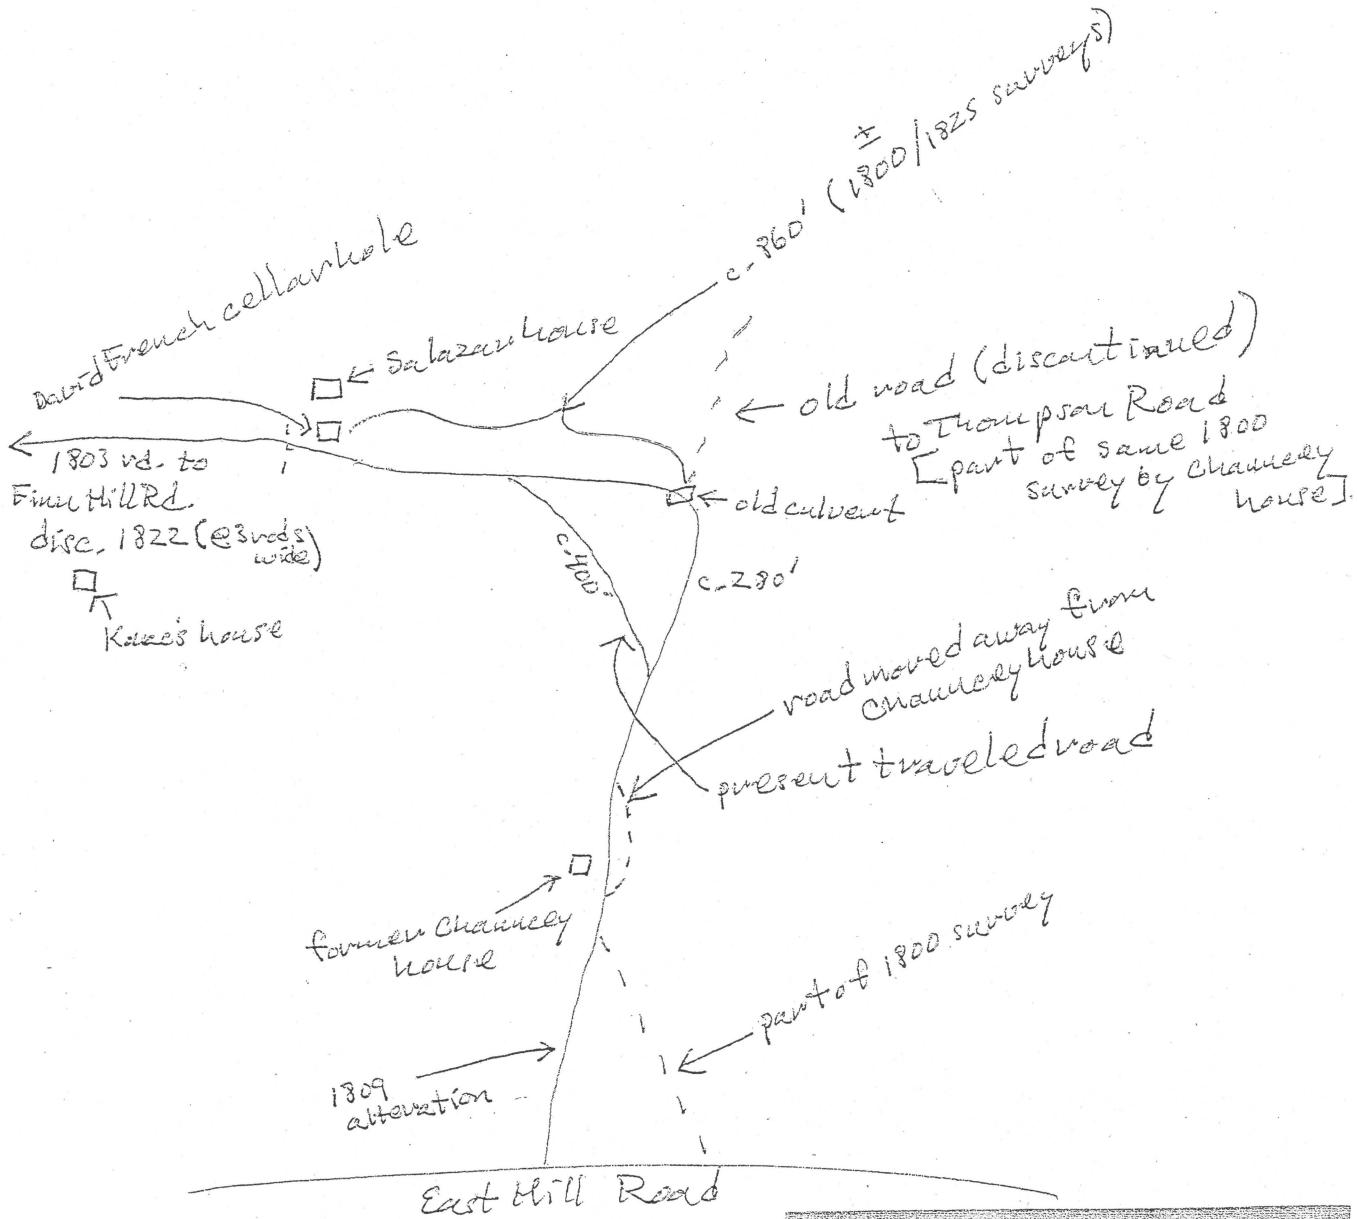 c. 860' (1800/1825 surveys)
±
David French cellarhole
Salazar house
old road (discontinued)
to Thompson Road
[part of same 1800
survey by Chauncey
house].
1803 rd. to
Finn Hill Rd.
disc. 1822 (@3 rods
wide)
old culvert
c. 400'
c. 280'
house
road moved away from
Chauncey house
present traveled road
former Chauncey
house
part of 1800 survey
1809
alteration
East Hill Road